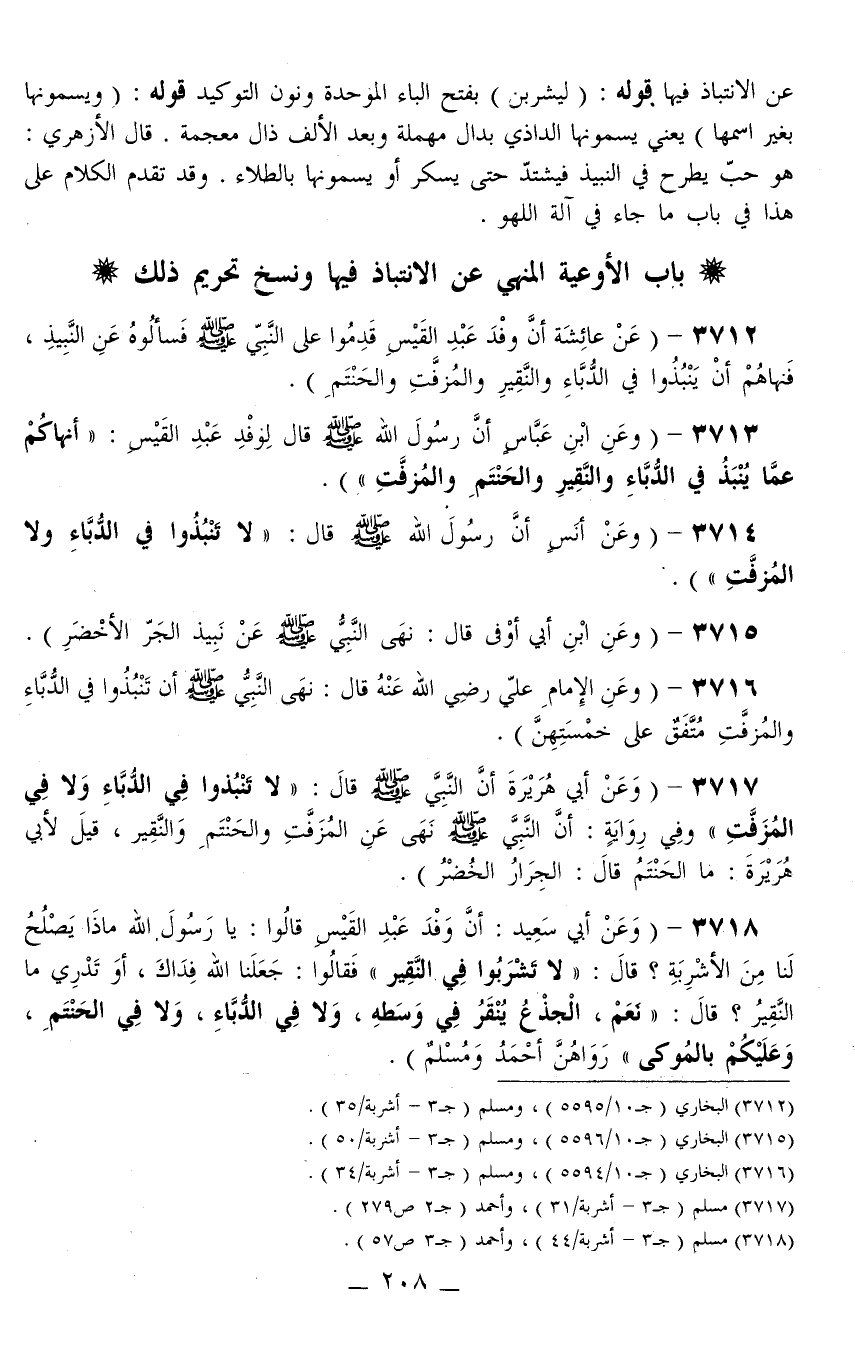 عن الانتباذ فيها قوله : ( ليشربن ) بفتح الباء الموحدة ونون التوكيد قوله : ( ويسمونها
بغير اسمها ) يعني يسمونها الداذي بدال مهملة وبعد الألف ذال معجمة . قال الأزهري :
هو حبّ يطرح في النبيذ فيشتدّ حتى يسكر أو يسمونها بالطلاء . وقد تقدم الكلام على
هذا في باب ما جاء في آلة اللهو .
✵ باب الأوعية المنهي عن الانتباذ فيها ونسخ تحريم ذلك ✵
٣٧١٢ – ( عَنْ عائِشَة أنَّ وفْدَ عَبْدِ القَيْسِ قَدِمُوا على النَّبِيّ ﷺ فَسألُوهُ عَنِ النَّبِيذِ ،
فَنهاهُمْ أنْ يَنْبُذُوا في الدُّبَّاءِ والنَّقِيرِ والمُزفَّتِ والحَنْتَمِ ) .
٣٧١٣ – ( وعَنِ ابْنِ عَبَّاسٍ أنَّ رسُولَ الله ﷺ قال لِوَفْدِ عَبْدِ القَيْسِ : « أنهاكُمْ
عمَّا يُنْبَذُ في الدُّبَّاءِ والنَّقِيرِ والحَنْتَمِ والمُزفَّتِ » ) .
٣٧١٤ – ( وعَنْ أنَسٍ أنَّ رسُولَ الله ﷺ قال : « لا تَنْبُذُوا في الدُّبَّاءِ ولا
المُزفَّتِ » ) .
٣٧١٥ – ( وعَنِ ابْنِ أبي أوْفى قال : نهَى النَّبِيُّ ﷺ عَنْ نَبِيذ الجَرّ الأخْضَرِ ) .
٣٧١٦ – ( وعَنِ الإِمامِ عليّ رضي الله عَنْهُ قال : نهَى النَّبِيُّ ﷺ أن تَنْبُذُوا في الدُّبَّاءِ
والمُزفَّتِ مُتَّفَقٌ على خمْسَتِهِنَّ ) .
٣٧١٧ – ( وَعَنْ أبي هُرَيْرَةَ أنَّ النَّبِيَّ ﷺ قالَ : « لا تَنْبُذوا فِي الدُّبَّاءِ وَلا فِي
المُزَفَّتِ » وفِي رِوَايَةٍ : أنَّ النَّبِيَّ ﷺ نَهَى عَنِ المُزَفَّتِ والحَنْتَمِ وَالنَّقِير ، قيلَ لأبي
هُرَيْرَةَ : ما الحَنْتَمُ قالَ : الجِرَارُ الخُضْرُ ) .
٣٧١٨ – ( وَعَنْ أبي سَعِيد : أنَّ وَفْدَ عَبْدِ القَيْسِ قالُوا : يا رَسُولَ الله ماذَا يَصْلُحُ
لَنا مِنَ الأشْرِبَةِ ؟ قالَ : « لا تَشْرَبُوا فِي النَّقِيرِ » فَقالُوا : جَعَلَنا الله فِدَاكَ ، أوَ تَدْرِي ما
النَّقِيرُ ؟ قالَ : « نَعَمْ ، الْجِذْعُ يُنْقَرُ فِي وَسَطهِ ، وَلا فِي الدُّبَّاءِ ، وَلا فِي الحَنْتَمِ ،
وَعَلَيْكُمْ بالمُوكى » رَوَاهُنَّ أحْمَدُ وَمُسْلمٌ ) .
(٣٧١٢) البخاري ( جـ٥٥٩٥/١٠ ) ، ومسلم ( جـ٣ – أشربة/٣٥ ) .
(٣٧١٥) البخاري ( جـ٥٥٩٦/١٠ ) ، ومسلم ( جـ٣ – أشربة/٥٠ ) .
(٣٧١٦) البخاري ( جـ٥٥٩٤/١٠ ) ، ومسلم ( جـ٣ – أشربة/٣٤ ) .
(٣٧١٧) مسلم ( جـ٣ – أشربة/٣١ ) ، وأحمد ( جـ٢ ص٢٧٩ ) .
(٣٧١٨) مسلم ( جـ٣ – أشربة/٤٤ ) ، وأحمد ( جـ٣ ص٥٧ ) .
– ٢٠٨ –